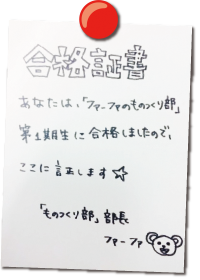 合格証書
あなたは、「ファーファのものつくり部」
第1期生に合格しましたので、
ここに証します☆
「ものつくり部」部長
ファーファ